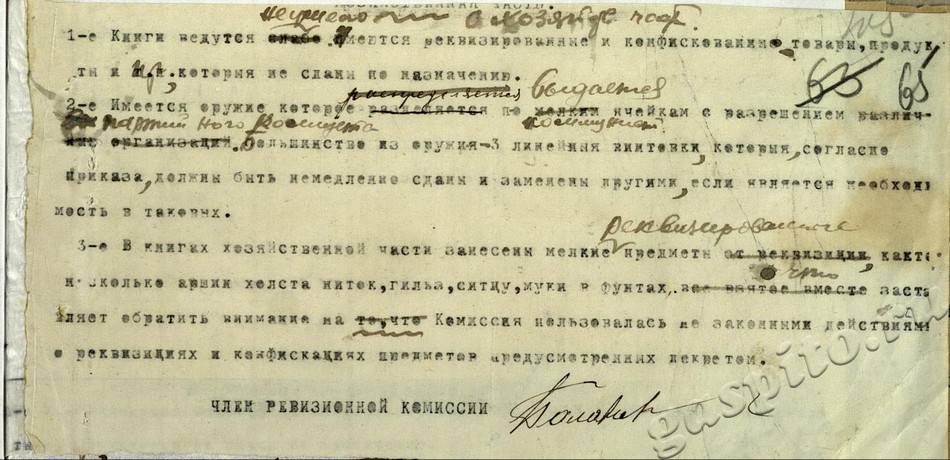 ХОЗЯЙСТВЕННАЯ ЧАСТЬ.
неумело о хозяйс част.
1-е Книги ведутся слабо Имеются реквизированные и конфискованные товары, продук
ти и т.п. которыя не сданы по назначению.
распределяется выдается
2-е Имеется оружие которое разделяется по мелким ячейкам с разрешением различ-
партийного Комитета коммунист
ные организаций. Большинство из оружия-3 линейныя винтовки, которыя, согласно
приказа, должны быть немедленно сданы и заменены другими, если является необходи
мость в таковых.
реквизированные
3-е В книгах хозяйственной части занесены мелкие предметы от реквизиции, както
что
несколько аршин холста ниток, гильз, ситцу, муки в фунтах, все взятое вместе заста
вляет обратить внимание на то, что Комиссия пользовалась не законными действиями
о реквизициях и конфискациях предметов предусмотренных декретом.
ЧЛЕН РЕВИЗИОННОЙ КОМИССИИ
65 65
gaspito.ru